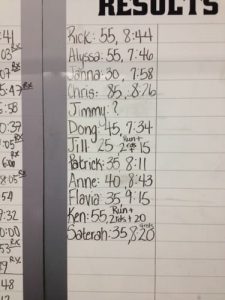 RESULTS
Rick: 55, 8:44
Alyssa: 55, 7:46
Janna: 30, 7:58
Chris: 85, 8:26
Jimmy: ?
Dong: 45, 7:34
Jill: 25 Run + 2 rds + 15
Patrick: 35, 8:11
Anne: 40, 8:43
Flavia: 35, 9:15
Ken: 55, Run + 2 rds + 20
Saterah: 35, 8:20
:41
:03 Rx
:07 Rx
5:47 Rx
:58
0:37
:05
:06
8:05 Rx
:54
9:32
0:00
:53 Rx
:19
:48